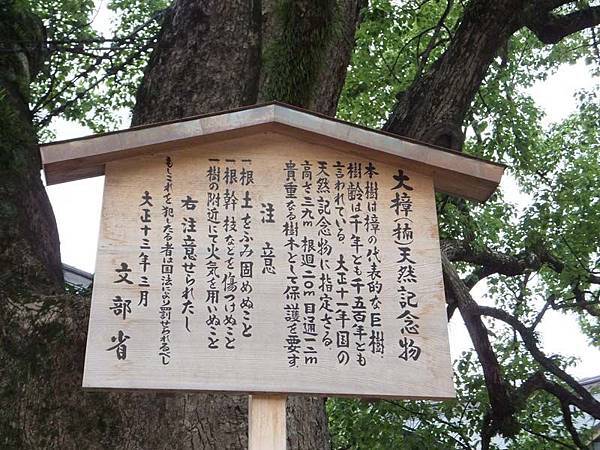 大樟(楠)天然記念物
本樹は樟の代表的な巨樹.
樹齢は千年とも千五百年とも
言われている 大正十一年国の
天然記念物に指定さる.
高さ三九m 根廻二〇m 目通一二m
貴重なる樹木として保護を要す
注意
一根土をふみ固めぬこと
一根幹枝などを傷つけぬこと
一樹の附近にて火気を用いぬこと
右注意せられたし
もしこれを犯したる者は国法により罰せられるべし
大正十三年三月
文部省